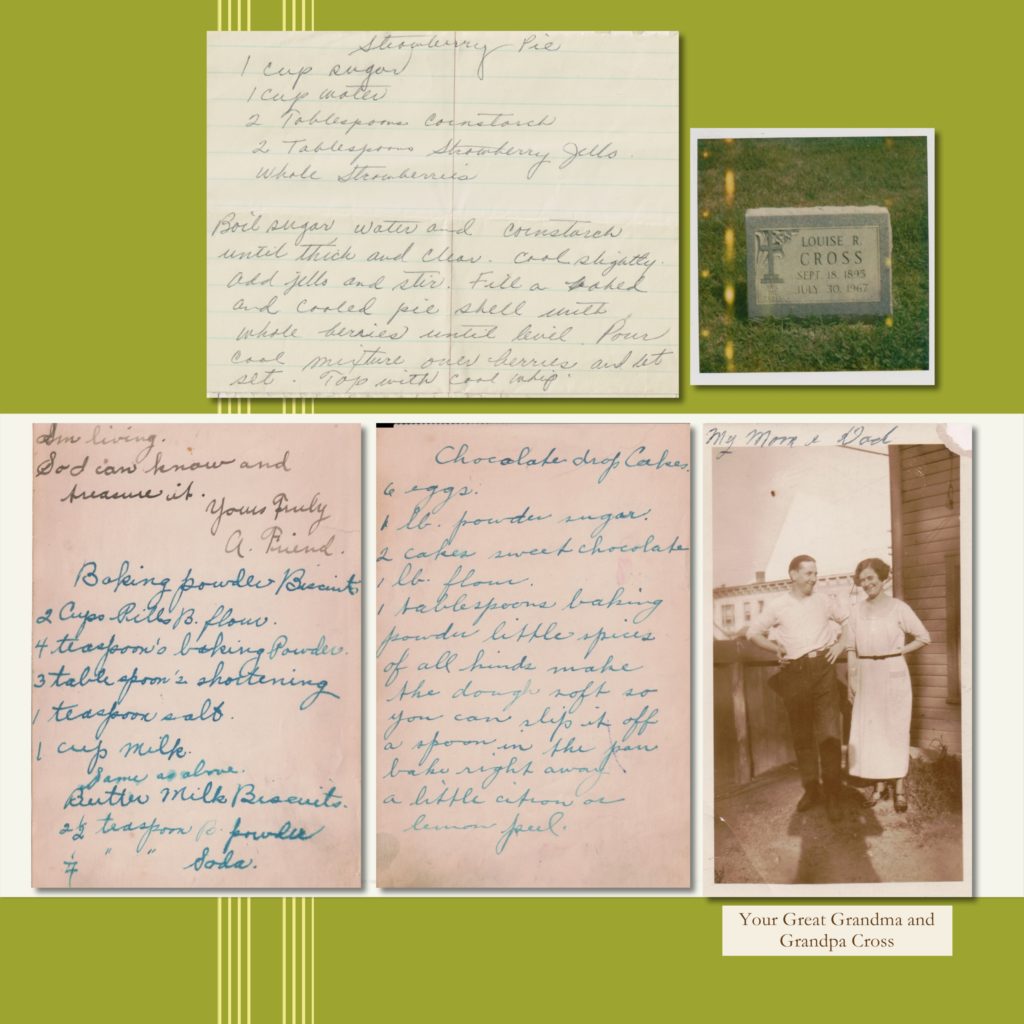 Strawberry Pie
1 cup sugar
1 cup water
2 Tablespoons Cornstarch
2 Tablespoons Strawberry Jello.
Whole Strawberries
Boil sugar water and cornstarch
until thick and clear. Cool slightly.
Add jello and stir. Fill a baked
and cooled pie shell with
whole berries until level. Pour
cool mixture over berries and let
set. Top with cool whip.
LOUISE R.
CROSS
SEPT. 18. 1895
JULY 30, 1967
Im living.
So I can know and
treasure it.
Yours Truly
A. Friend.
Baking powder Biscuits
2 Cups Pills B. flour.
4 teaspoon's baking Powder.
3 table spoon's shortening
1 teaspoon salt.
1 cup milk.
Same as above.
Butter Milk Biscuits.
2½ teaspoon B. powder
" " Soda.
Chocolate drop Cakes.
6 eggs.
1 lb. powder sugar.
2 cakes sweet chocolate
1 lb. flour.
1 tablespoons baking
powder little spices
of all kinds make
the dough soft so
you can slip it off
a spoon in the pan
bake right away.
a little citron or
lemon peel.
My Mom & Dad
Your Great Grandma and
Grandpa Cross